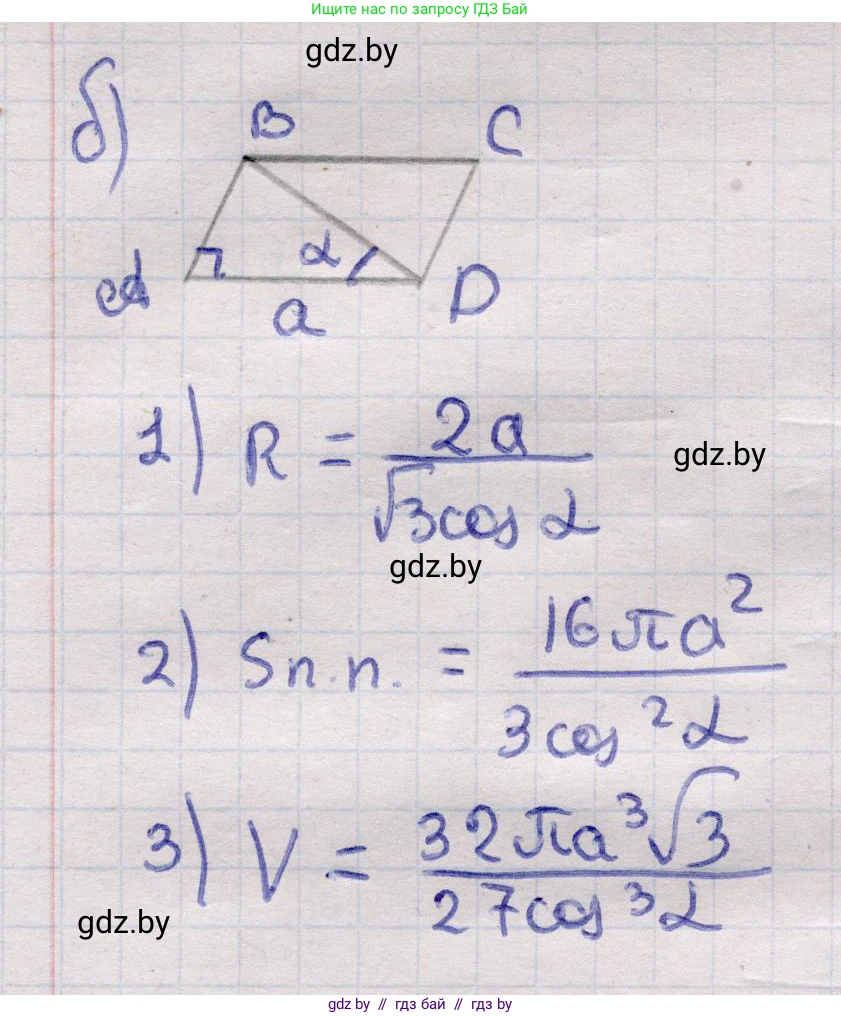 Ищите нас по запросу ГДЗ Бай
gdz.by
б)
B
C
α
A
D
a
1) R = 2a / √3cos α
gdz.by
gdz.by
2) Sп.п. = 16πa² / 3cos²α
3) V = 32πa³√3 / 27cos³α
gdz.by
gdz by // гдз бай // gdz by